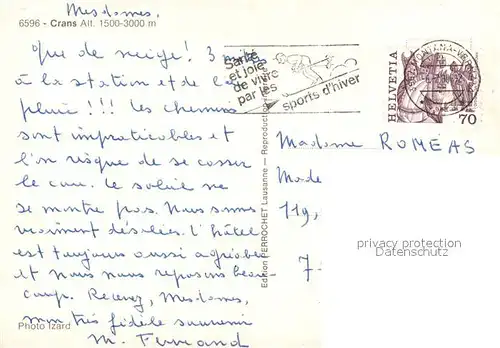 Mesdames,
6596 - Crans Alt. 1500-3000 m
Que de neige! 3
à la station et de la
pluie!!! Les chemins
sont impraticables et
l'on risque de se casser
le cou. Le soleil ne
se montre pas. Nous sommes
vraiment désolées. L'hôtel
est toujours aussi agréable
et nous nous reposons beau-
coup. Recevez, Mesdames,
mon très fidèle souvenir
M. Ferrand
Photo Izard
Edition PERROCHET Lausanne — Reproduction
Santé
et joie
de vivre
par les
sports d'hiver
HELVETIA
70
MONTANA-VER
Madame ROMEAS
Mode
119,
7.
privacy protection
Datenschutz